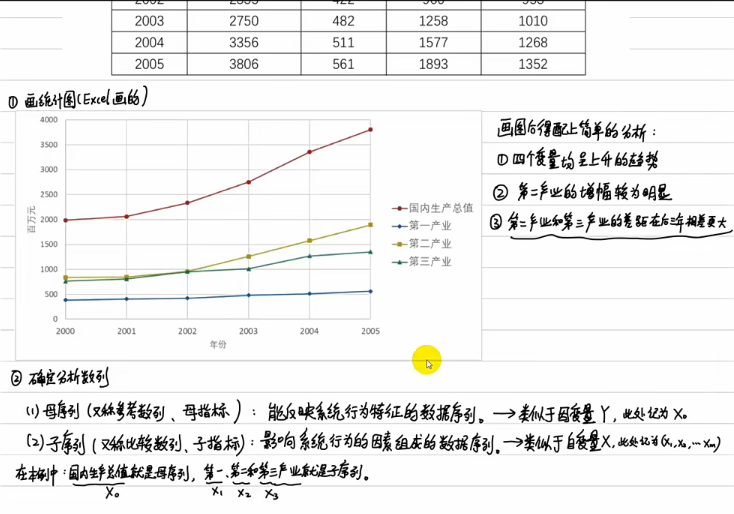 2003 2750 482 1258 1010
2004 3356 511 1577 1268
2005 3806 561 1893 1352
① 画统计图(Excel画的)
4000
3500
3000
2500
2000
1500
1000
500
0
百万元
2000 2001 2002 2003 2004 2005
年份
国内生产总值
第一产业
第二产业
第三产业
画图后得配上简单的分析：
① 四个变量均呈上升的趋势
② 第二产业的增幅较为明显
③ 第二产业和第三产业的差距在后三年相差更大
② 确定分析数列
(1) 母序列(又称参考数列、母指标)：能反映系统行为特征的数据序列。→类似于因变量 Y，此处记为 X₀
(2) 子序列(又称比较数列、子指标)：影响系统行为的因素组成的数据序列。→类似于自变量X，此处记为(x₁,x₂,…xₘ)
在本例中：国内生产总值就是母序列，第一、第二和第三产业就是子序列。
X₀ X₁ X₂ X₃